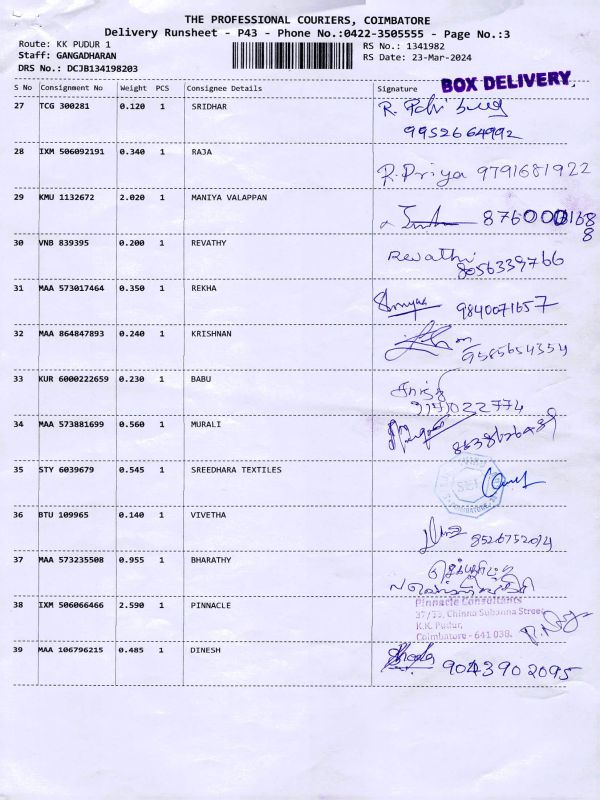 THE PROFESSIONAL COURIERS, COIMBATORE
Delivery Runsheet - P43 - Phone No.:0422-3505555 - Page No.:3
Route: KK PUDUR 1 RS No.: 1341982
Staff: GANGADHARAN RS Date: 23-Mar-2024
DRS No.: DCJB134198203
BOX DELIVERY
S No Consignment No Weight PCS Consignee Details Signature
27 TCG 300281 0.120 1 SRIDHAR
9952664992
28 IXM 506092191 0.340 1 RAJA R.Priya 9791681922
29 KMU 1132672 2.020 1 MANIYA VALAPPAN
30 VNB 839395 0.200 1 REVATHY Revathi
8056339766
31 MAA 573017464 0.350 1 REKHA 9840071657
32 MAA 864847893 0.240 1 KRISHNAN
9585654354
33 KUR 6000222659 0.230 1 BABU
34 MAA 573881699 0.560 1 MURALI
35 STY 6039679 0.545 1 SREEDHARA TEXTILES
36 BTU 109965 0.140 1 VIVETHA
8526752014
37 MAA 573235508 0.955 1 BHARATHY
38 IXM 506066466 2.590 1 PINNACLE
Pinnacle Consultants
37/13, Chinna Subanna Street
K.K. Pudur,
Coimbatore - 641 038.
39 MAA 106796215 0.485 1 DINESH 9043902095